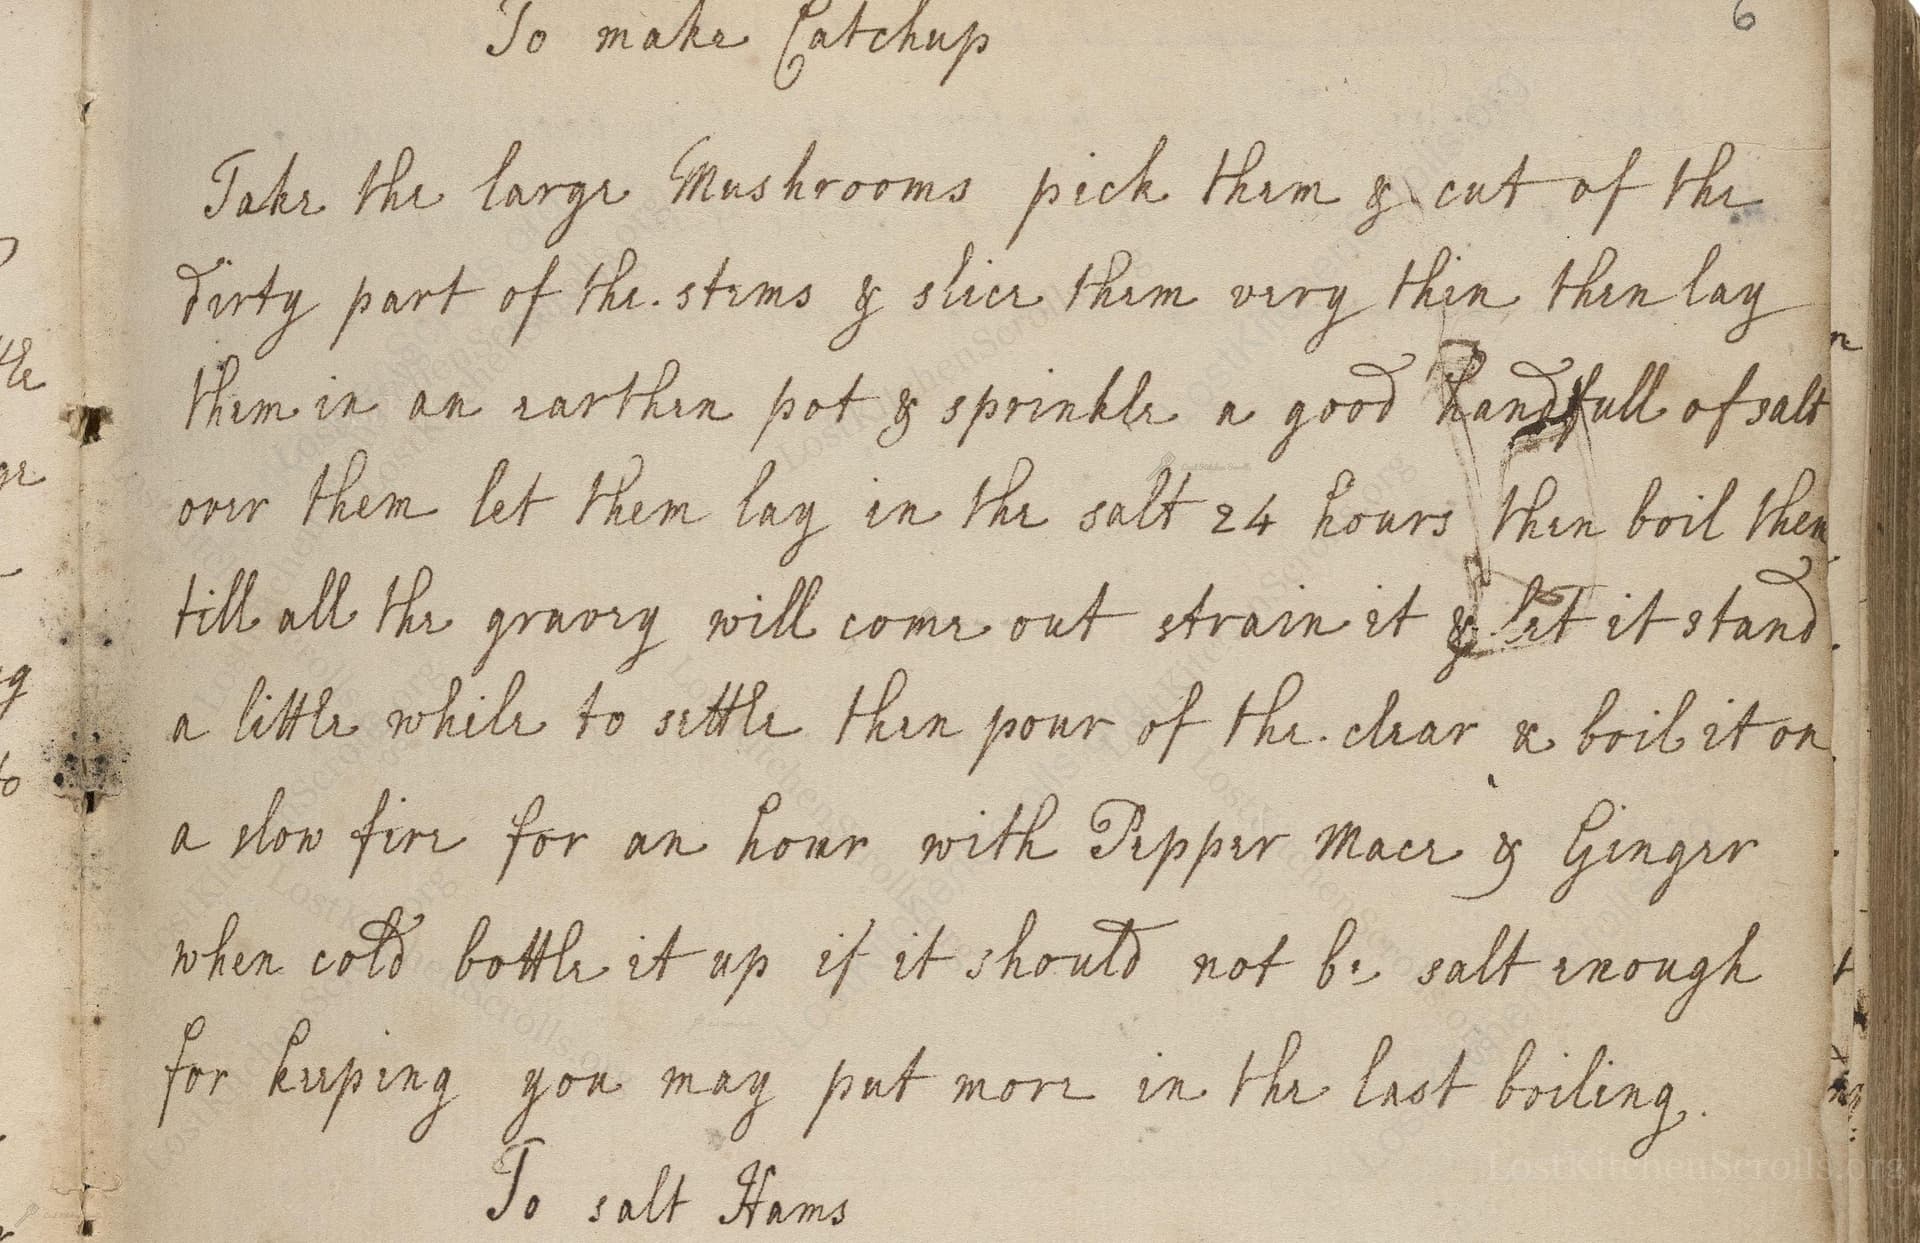 To make Catchup
6
Take the large Mushrooms pick them & cut of the
dirty part of the stems & slice them very thin then lay
them in an earthen pot & sprinkle a good handfull of salt
over them let them lay in the salt 24 hours then boil them
till all the gravey will come out strain it & let it stand
a little while to settle then pour of the clear & boil it on
a slow fire for an hour with Pepper Mace & Ginger
when cold bottle it up if it should not be salt enough
for keeping you may put more in the last boiling.
To salt Hams
LostKitchenScrolls.org